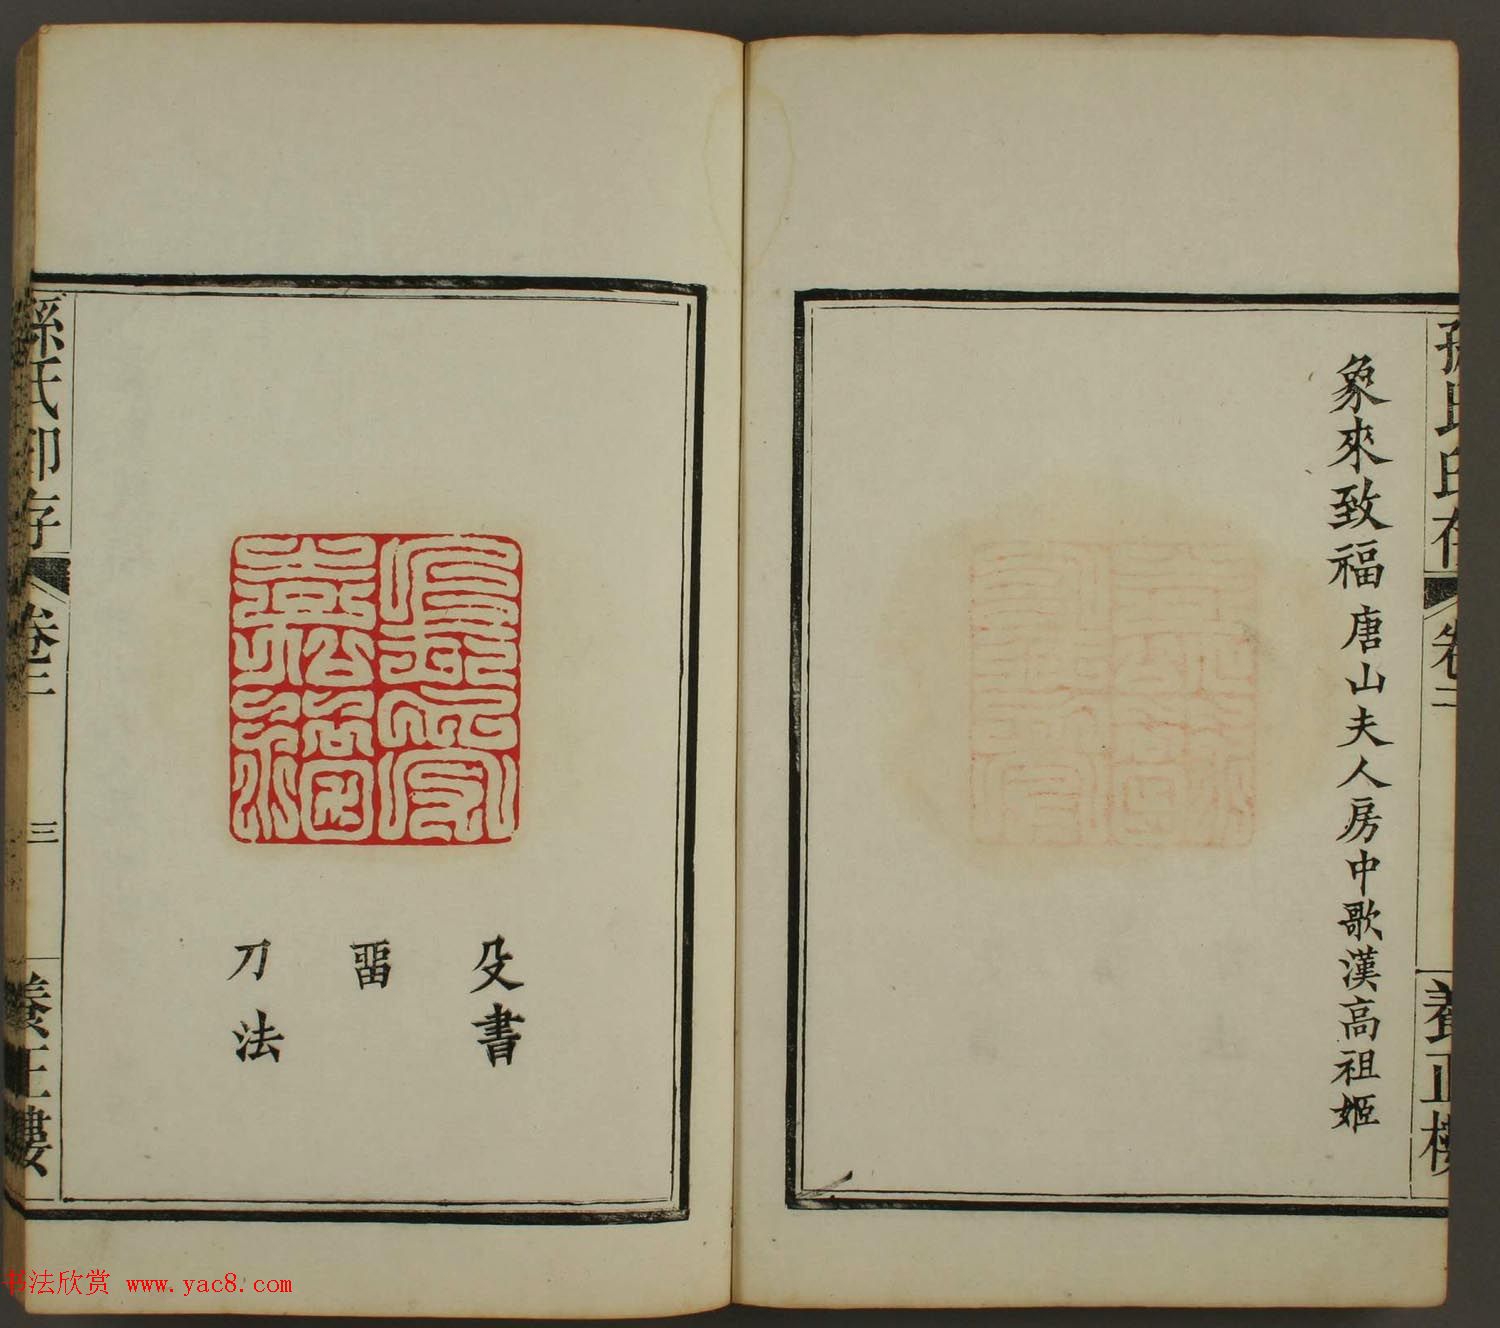 孫氏印存
卷二
養正樓
象來致福 唐山夫人房中歌漢高祖姬
殳書
畱
刀法
孫氏印存
卷二
三
養正樓
书法欣赏 www.yac8.com